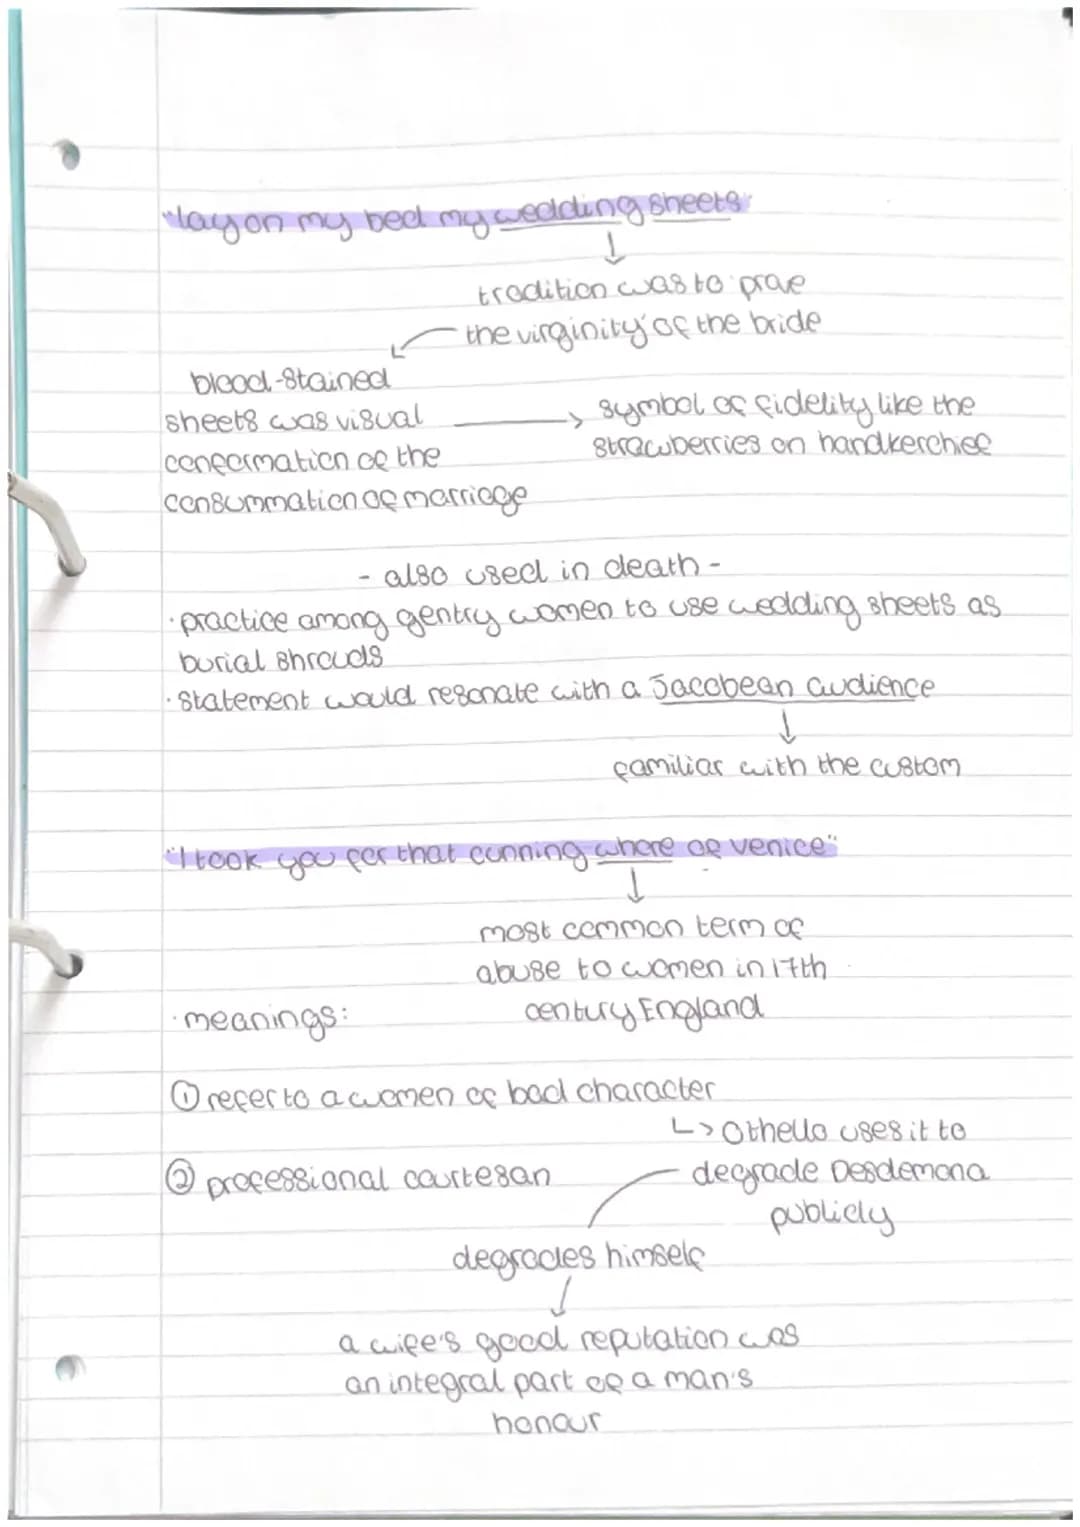 "lay on my bed my wedding sheets"
↓
tradition was to 'prove
the virginity' of the bride
blood-stained
sheets was visual → symbol of fidelity like the
confirmation of the strawberries on handkerchief
consummation of marriage
- also used in death -
· practice among gentry women to use wedding sheets as
burial shrouds
· statement would resonate with a Jacobean audience
↓
familiar with the custom
"I took you for that cunning whore of venice"
↓
most common term of
abuse to women in 17th
· meanings: century England
① refer to a women of bad character
↳ Othello uses it to
② professional courtesan degrade Desdemona
publicly
degrades himself
↓
a wife's good reputation was
an integral part of a man's
honour